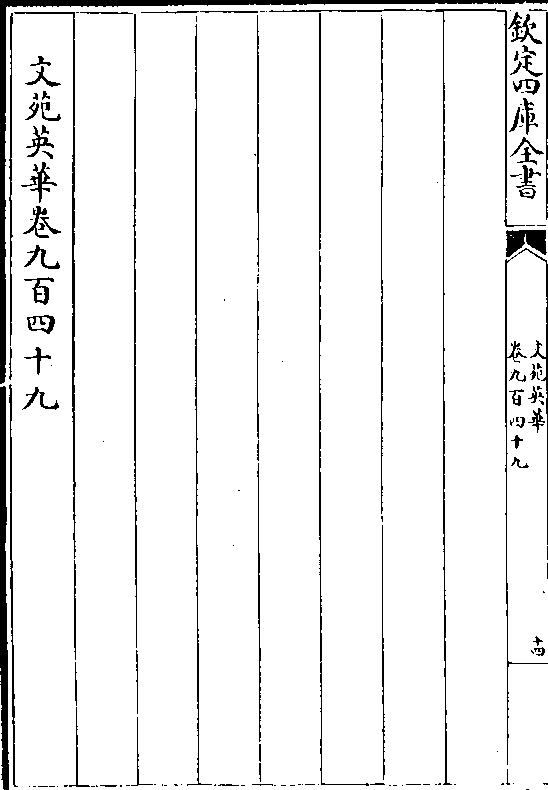 欽定四庫全書
文苑英華
卷九百四十九
十四
文苑英華卷九百四十九